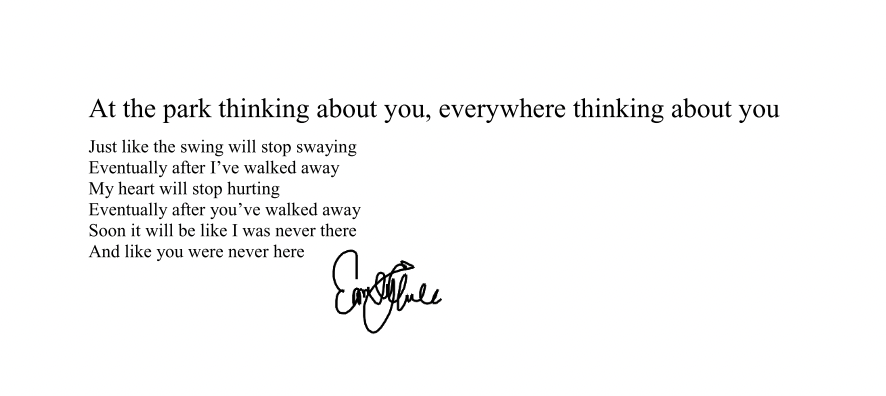 At the park thinking about you, everywhere thinking about you
Just like the swing will stop swaying
Eventually after I’ve walked away
My heart will stop hurting
Eventually after you’ve walked away
Soon it will be like I was never there
And like you were never here